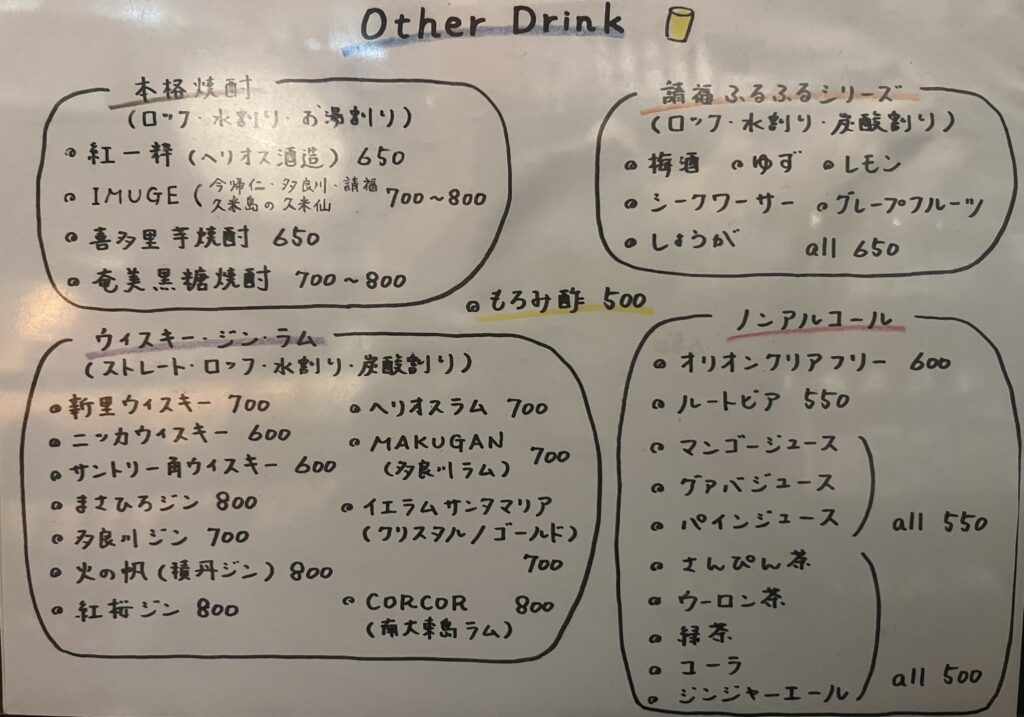 Other Drink
本格焼酎
(ロック・水割り・お湯割り)
紅一粋 (ヘリオス酒造) 650
IMUGE (今帰仁・多良川・請福
久米島の久米仙 700～800
喜多里芋焼酎 650
奄美黒糖焼酎 700～800
請福ふるふるシリーズ
(ロック・水割り・炭酸割り)
梅酒 ゆず レモン
シークワーサー グレープフルーツ
しょうが all 650
もろみ酢 500
ウィスキー・ジン・ラム
(ストレート・ロック・水割り・炭酸割り)
新里ウィスキー 700
ニッカウィスキー 600
サントリー角ウィスキー 600
まさひろジン 800
多良川ジン 700
火の帆 (積丹ジン) 800
紅桜ジン 800
ヘリオスラム 700
MAKUGAN
(多良川ラム) 700
イエラムサンタマリア
(クリスタル/ゴールド)
700
CORCOR 800
(南大東島ラム)
ノンアルコール
オリオンクリアフリー 600
ルートビア 550
マンゴージュース
グァバジュース
パインジュース
all 550
さんぴん茶
ウーロン茶
緑茶
コーラ
ジンジャーエール
all 500